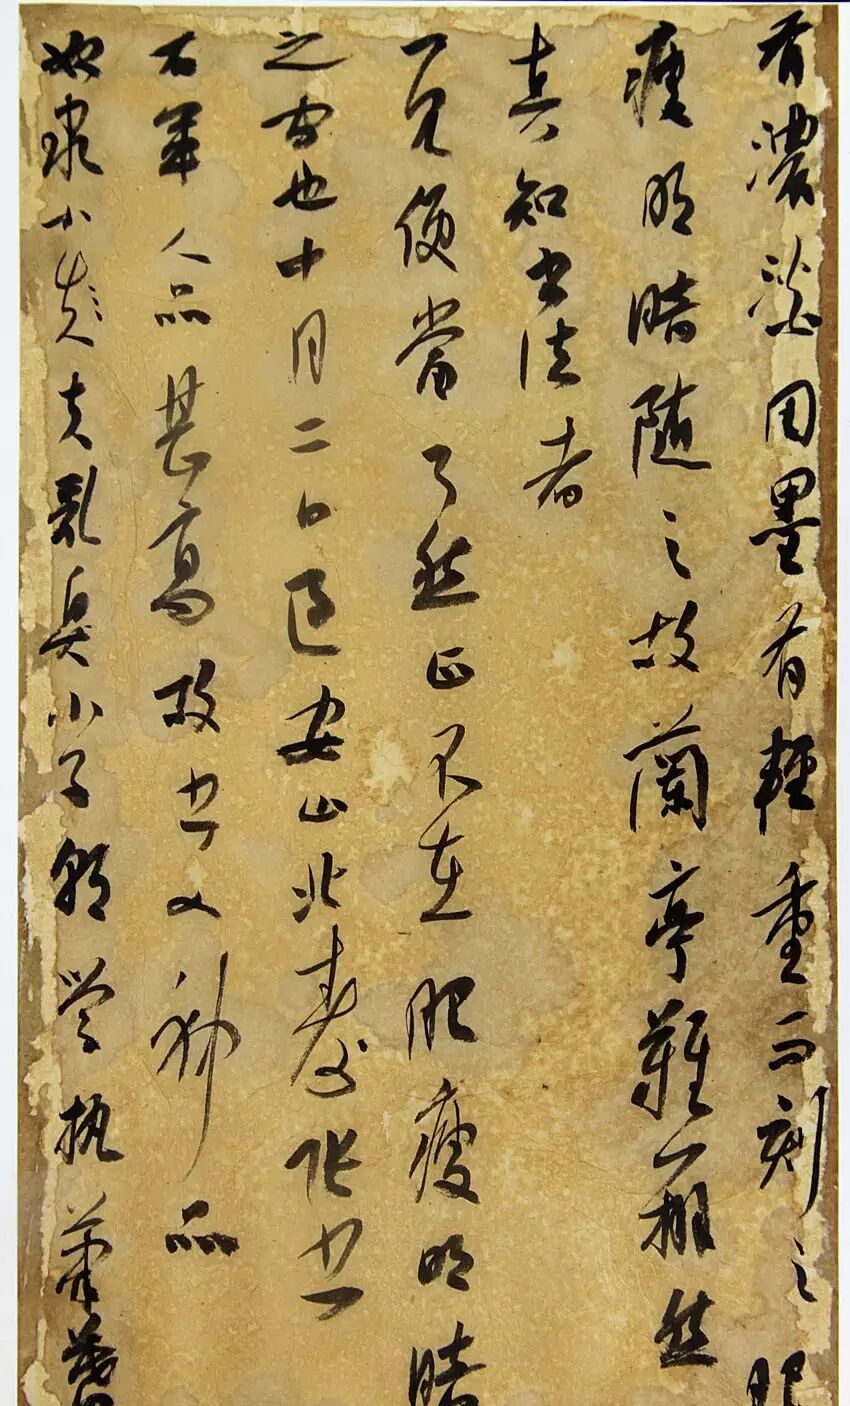 有濃淡用墨有輕重而刻之肥
瘦明暗隨之故蘭亭難辨然
真知書法者
一見便當了然正不在肥瘦明暗
之間也十月二日過安山北壽張書
右軍人品甚高故書入神品
奴隸小夫乳臭小子朝學執筆暮